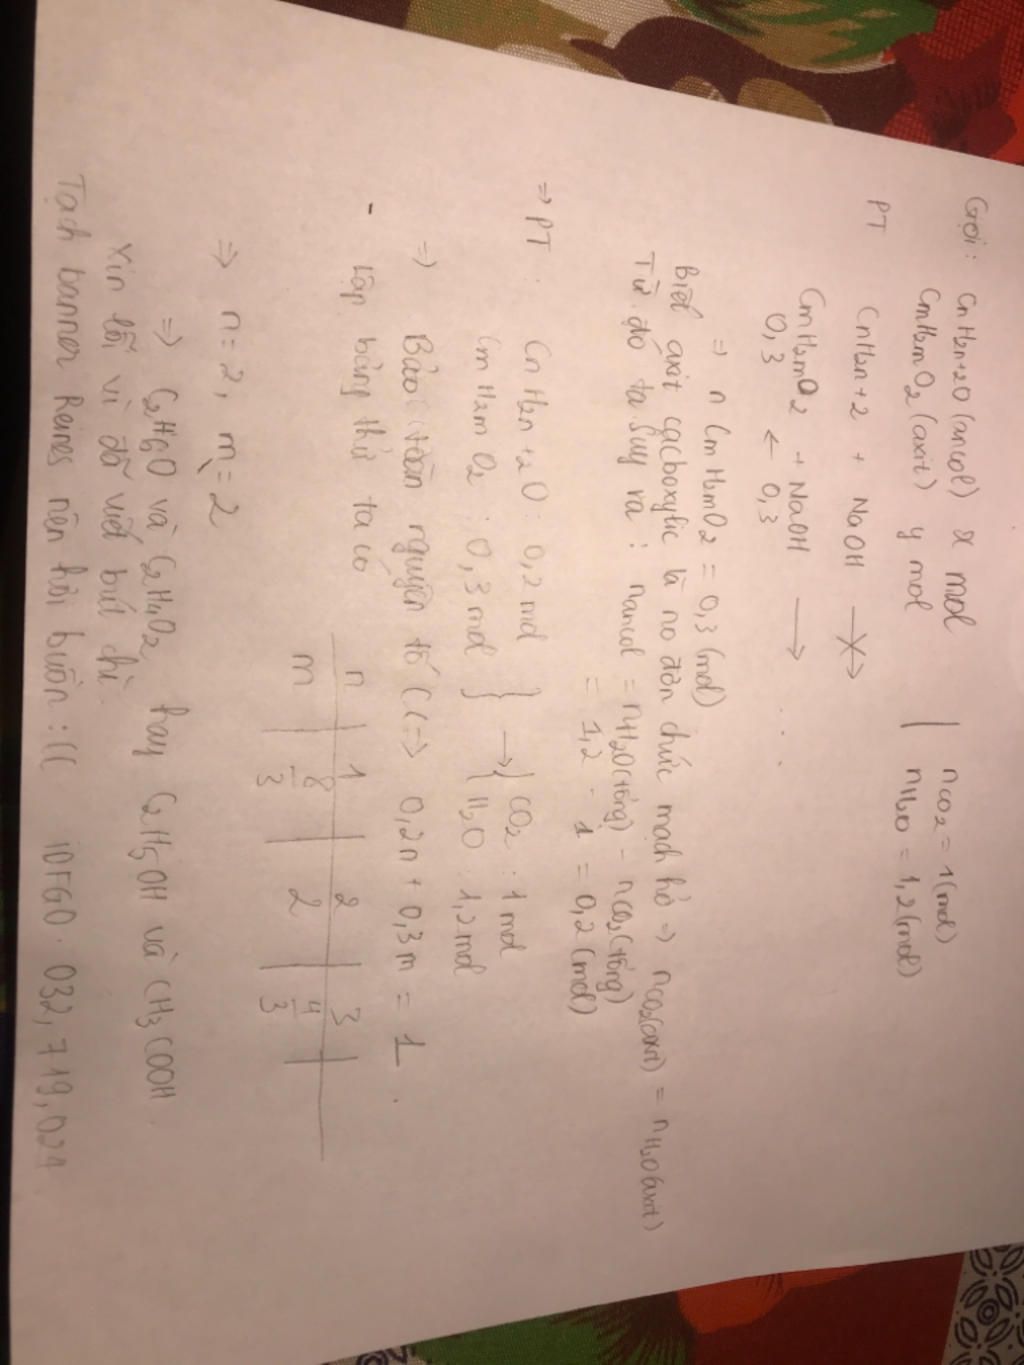 Gọi: CnH2n+2O (ancol) x mol | nCO2 = 1 (mol)
CmH2mO2 (axit) y mol nH2O = 1,2 (mol)
PT CnH2n+2 + NaOH ⟶
CmH2mO2 + NaOH ⟶ ...
0,3 ← 0,3
⇒ n CmH2mO2 = 0,3 (mol)
Biết axit cacboxylic là no đơn chức mạch hở ⇒ nCO2(axit) = nH2O(axit)
Từ đó ta suy ra : nancol = nH2O(tổng) - nCO2(tổng)
= 1,2 - 1 = 0,2 (mol)
⇒ PT : CnH2n+2O : 0,2 mol } → { CO2 : 1 mol
CmH2mO2 : 0,3 mol H2O : 1,2 mol
⇒ Bảo toàn nguyên tố C (⇒ 0,2n + 0,3m = 1.
- Lập bảng thử ta có
n | 1 | 2 | 3 |
m | 8/3 | 2 | 4/3
⇒ n = 2, m = 2
⇒ C2H6O và C2H4O2 hay C2H5OH và CH3COOH
Xin lỗi vì đã viết bút chì.
Tạch banner Reines nên hơi buồn :(( iDFGO. 032,719,021